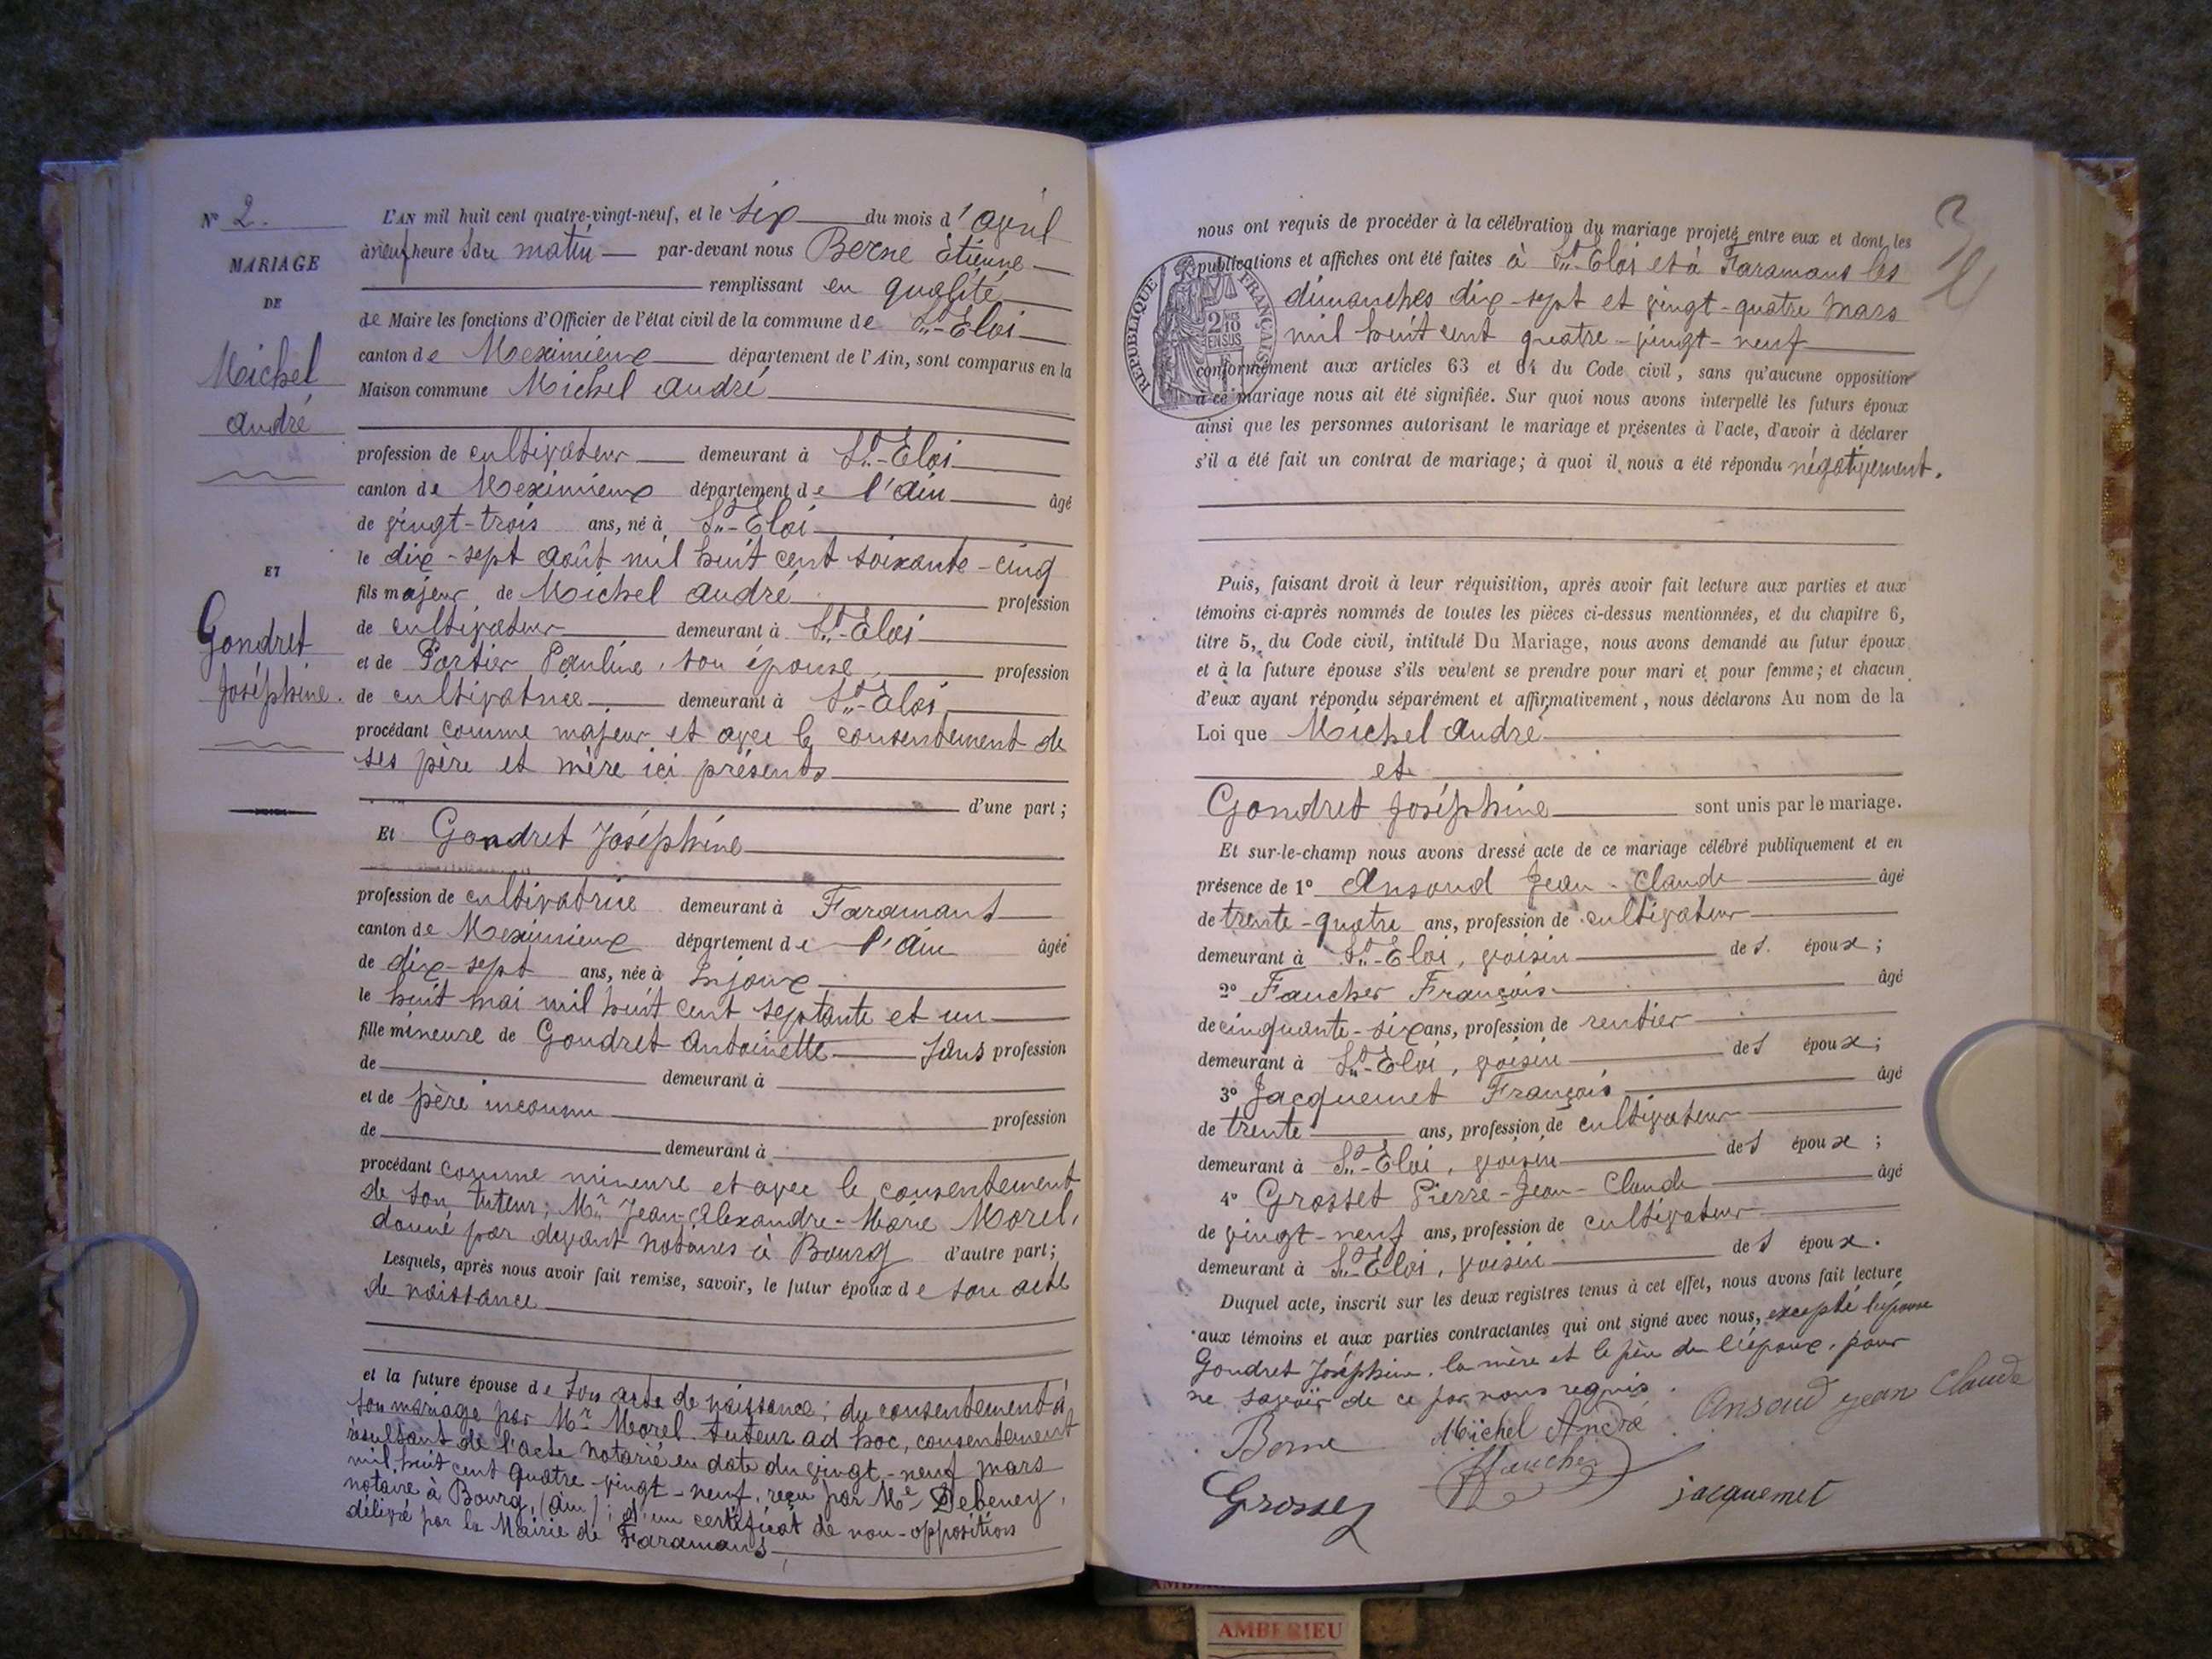 N° 2.
MARIAGE
DE
Michel
André
ET
Gondret
Joséphine.
L'AN mil huit cent quatre-vingt-neuf, et le six du mois d'avril
à neuf heures du matin par-devant nous Berne Etienne
remplissant en qualité
de Maire les fonctions d'Officier de l'état civil de la commune de St-Eloi
canton de Meximieux département de l'Ain, sont comparus en la
Maison commune Michel André
profession de cultivateur demeurant à St-Eloi
canton de Meximieux département de l'Ain âgé
de vingt-trois ans, né à St-Eloi
le dix-sept août mil huit cent soixante-cinq
fils majeur de Michel André profession
de cultivateur demeurant à St-Eloi
et de Portier Pauline, son épouse, profession
de cultivatrice demeurant à St-Eloi
procédant comme majeur et avec le consentement de
ses père et mère ici présents
d'une part;
Et Gondret Joséphine
profession de cultivatrice demeurant à Faramans
canton de Meximieux département de l'Ain âgée
de dix-sept ans, née à Injoux
le huit mai mil huit cent septante et un
fille mineure de Gondret Antoinette sans profession
de demeurant à
et de père inconnu profession
de demeurant à
procédant comme mineure et avec le consentement
de son tuteur; Mr Jean-Alexandre-Marie Morel,
donné par devant notaires à Bourg d'autre part;
Lesquels, après nous avoir fait remise, savoir, le futur époux de son acte
de naissance
et la future épouse de son acte de naissance; du consentement à
son mariage par Mr Morel tuteur ad hoc, consentement
résultant de l'acte notarié en date du vingt-neuf mars
mil huit cent quatre-vingt-neuf, reçu par Me Debeney,
notaire à Bourg, (Ain); d'un certificat de non-opposition
délivré par la Mairie de Faramans
nous ont requis de procéder à la célébration du mariage projeté entre eux et dont les
publications et affiches ont été faites à St-Eloi et à Faramans les
dimanches dix-sept et vingt-quatre mars
mil huit cent quatre-vingt-neuf
REPUBLIQUE FRANÇAISE
2/10 EN SUS
conformément aux articles 63 et 64 du Code civil, sans qu'aucune opposition
à ce mariage nous ait été signifiée. Sur quoi nous avons interpellé les futurs époux
ainsi que les personnes autorisant le mariage et présentes à l'acte, d'avoir à déclarer
s'il a été fait un contrat de mariage; à quoi il nous a été répondu négativement.
Puis, faisant droit à leur réquisition, après avoir fait lecture aux parties et aux
témoins ci-après nommés de toutes les pièces ci-dessus mentionnées, et du chapitre 6,
titre 5, du Code civil, intitulé Du Mariage, nous avons demandé au futur époux
et à la future épouse s'ils veulent se prendre pour mari et pour femme; et chacun
d'eux ayant répondu séparément et affirmativement, nous déclarons Au nom de la
Loi que Michel André
et
Gondret Joséphine sont unis par le mariage.
Et sur-le-champ nous avons dressé acte de ce mariage célébré publiquement et en
présence de 1° Ansoud Jean-Claude âgé
de trente-quatre ans, profession de cultivateur
demeurant à St-Eloi, voisin des époux;
2° Faucher François âgé
de cinquante-six ans, profession de rentier
demeurant à St-Eloi, voisin des époux;
3° Jacquemet François âgé
de trente ans, profession de cultivateur
demeurant à St-Eloi, voisin des époux;
4° Grosset Pierre-Jean-Claude âgé
de vingt-neuf ans, profession de cultivateur
demeurant à St-Eloi, voisin des époux.
Duquel acte, inscrit sur les deux registres tenus à cet effet, nous avons fait lecture
aux témoins et aux parties contractantes qui ont signé avec nous, excepté l'épouse
Gondret Joséphine, la mère et le père de l'époux, pour
ne savoir de ce par nous requis.
Berne Michel André Ansoud Jean Claude
Faucher
Grosset jacquemet
AMBERIEU